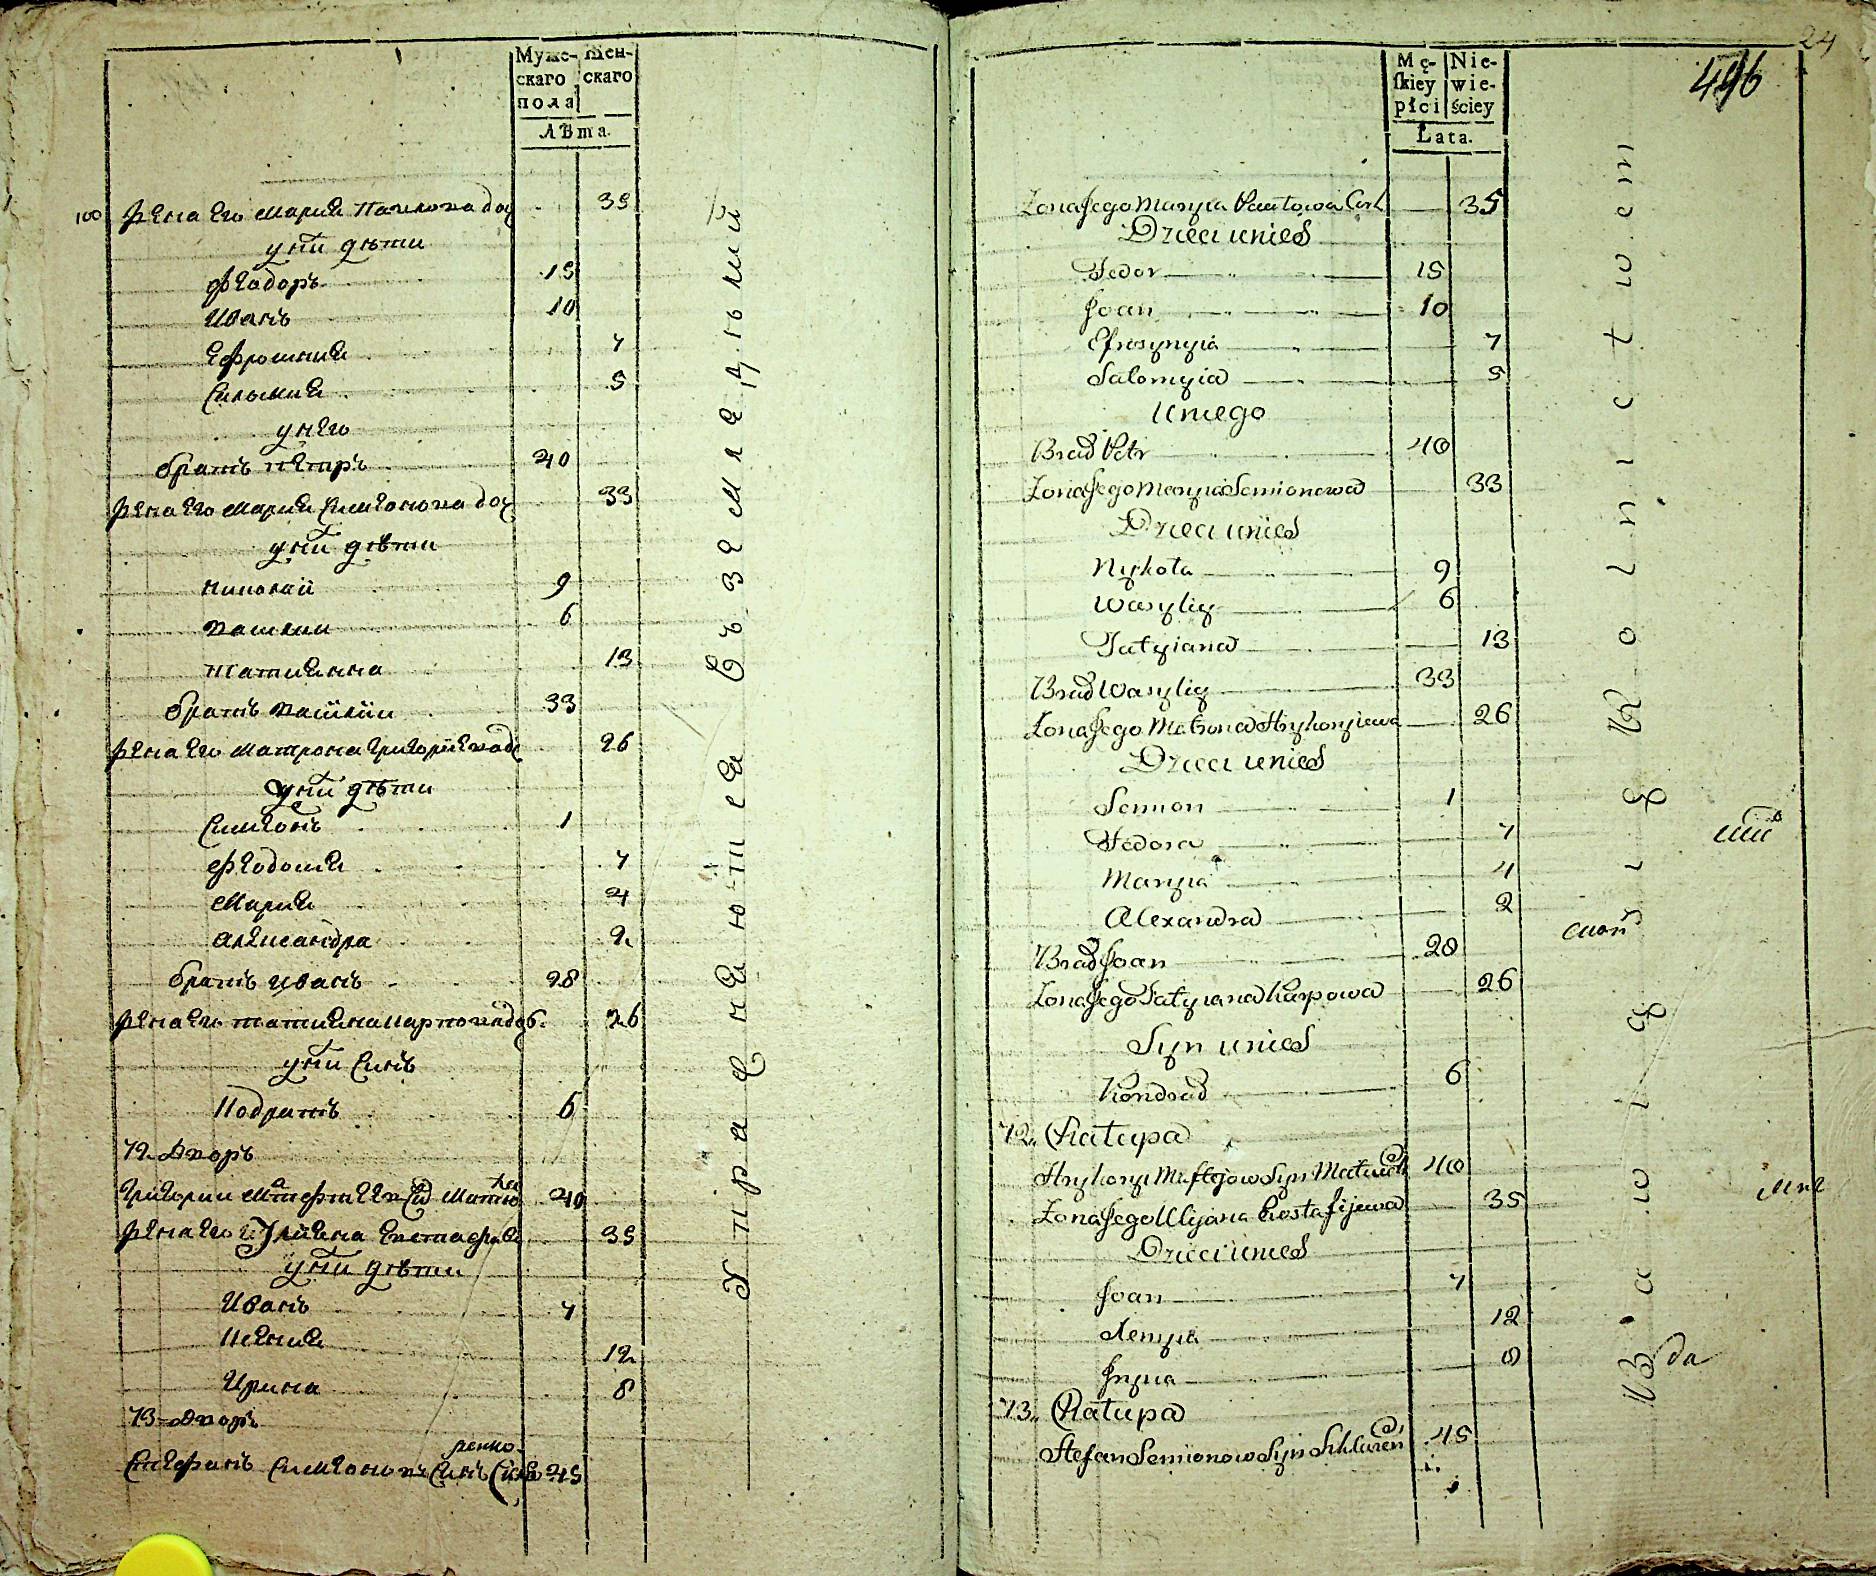 Муже-
скаго
пола
Жен-
скаго
Лѣта.
100 жена его Мария Павлова доч 35
у них дѣти
Феодоръ 15
Иванъ 10
Ефросиния 7
Саломия 5
у него
братъ Петръ 40
жена его Мария Симеонова доч 33
у них дѣти
Николай 9
Василий 6
Татиянна 13
братъ Василий 33
жена его Матрона Григориева до 26
у них дѣти
Симеонъ 1
Феодосия 7
Мария 4
Александра 2
братъ Иванъ 28
жена его Татияна Карпова доч. 26
у них синъ
Кодратъ 6
72 Дворъ
Григории 40
жена его Улияна Евстафиев 35
у них дѣти
Иванъ 7
Ксения 12
Ирина 8
73 дворъ
Стефанъ Симеоновъ синъ 45
Упражнеются въ земледѣлии
24
496
Mę-
ſkiey
płci
Nie-
wie-
ściey
Lata.
Żona Jego Maryia Pawłowa Cork 35
Dzieci unich
Fedor 15
Joan 10
Efrosynyia 7
Salomyia 5
Uniego
Brat Petr 40
Żona Jego Maryia Semionowa 33
Dzieci unich
Nykola 9
Wasyliy 6
Tatyiana 13
Brat Wasyliy 33
Żona Jego Matrona Hryhoryiewa 26
Dzieci unich
Semion 1
Fedora 7
Maryia 4
Alexandra 2
Brat Joan 28
Żona Jego Tatyiana Karpowa 26
Syn unich
Kondrat 6
72. Chatupa
Hryhoryi Syn 40
Żona Jego Ulyana Eostafijewa 35
Dzieci unich
Joan 7
Xenyia 12
Jryna 8
73. Chatupa
Stefan Semionow Syn 45
Bawią się Rolnictwem